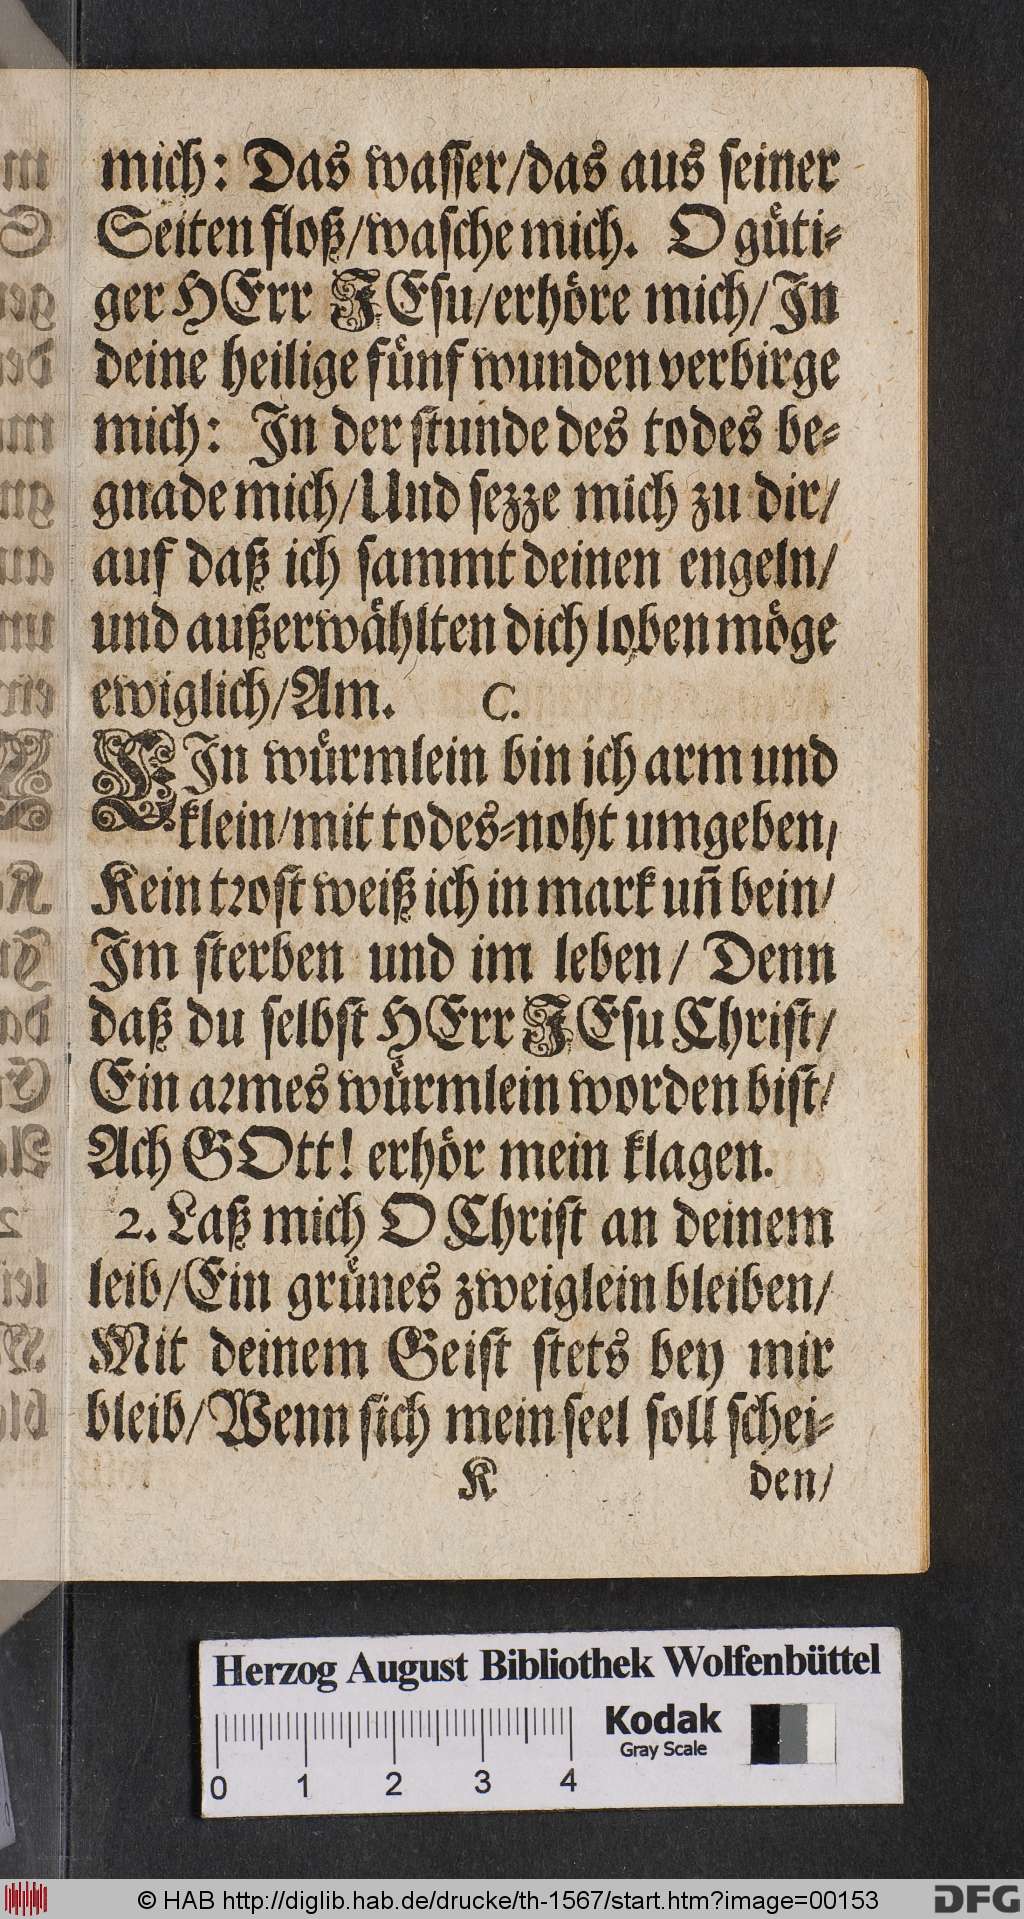 mich: Das wasser/das aus seiner
Seiten floß/wasche mich. O guͤti-
ger HErr JEsu/erhöre mich/In
deine heilige fuͤnf wunden verbirge
mich: In der stunde des todes be-
gnade mich/Und sezze mich zu dir/
auf daß ich sammt deinen engeln/
und außerwaͤhlten dich loben möge
ewiglich/Am. C.
EIn wuͤrmlein bin ich arm und
klein/mit todes-noht umgeben/
Kein trost weiß ich in mark uñ bein/
Im sterben und im leben/ Denn
daß du selbst HErr JEsu Christ/
Ein armes wuͤrmlein worden bist/
Ach GOtt! erhör mein klagen.
2. Laß mich O Christ an deinem
leib/Ein gruͤnes zweiglein bleiben/
Mit deinem Geist stets bey mir
bleib/Wenn sich mein seel soll schei-
K den/
Herzog August Bibliothek Wolfenbüttel
Kodak
Gray Scale
0 1 2 3 4
© HAB http://diglib.hab.de/drucke/th-1567/start.htm?image=00153
DFG